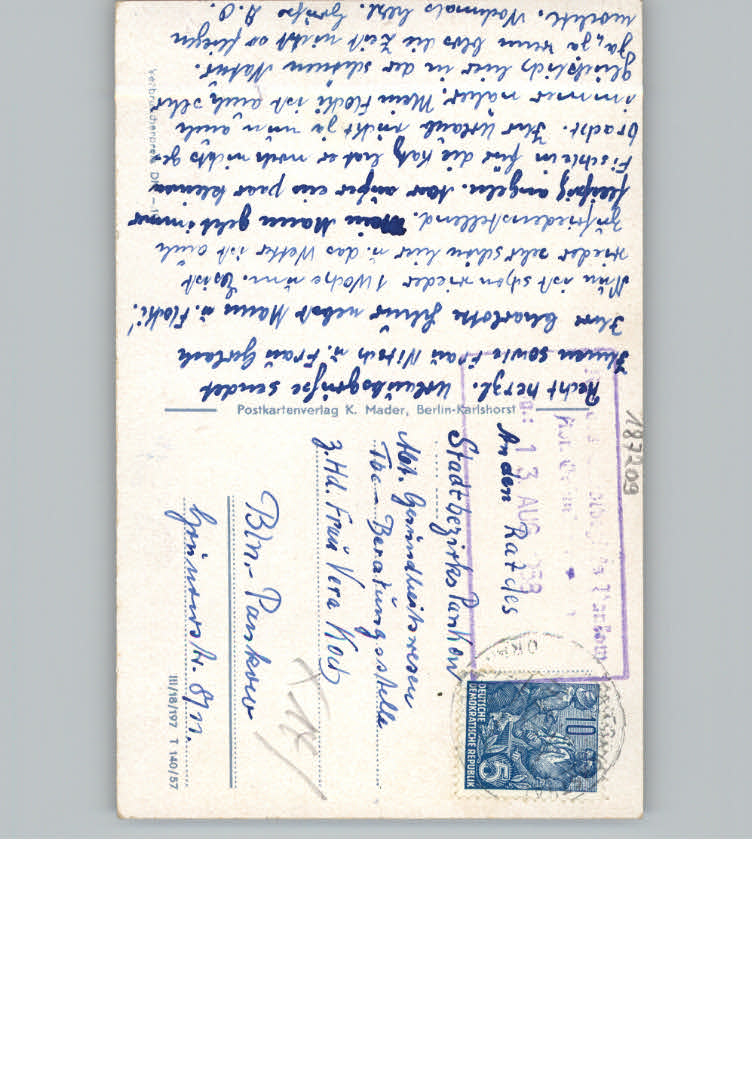 Recht herzl. Urlaubsgrüße sendet
Ihnen sowie Frau Nitsch u. Frau Gerlach
Ihre Charlotte nebst Mann u. Flocki!
Nun ist schon wieder 1 Woche um. Es ist
wieder sehr schön hier u. das Wetter ist auch
zufriedenstellend. Mein Mann geht immer
fleißig angeln. Nur außer ein paar kleinen
Fischlein für die Katz hat er noch nichts ge-
bracht. Ihr Urlaub rückt ja nun auch
immer näher. Mein Flocki ist auch sehr
glücklich hier in der schönen Natur.
Ja, ja wenn bloß die Zeit nicht so fliegen
möchte. Nochmals herzl. Grüße D. O.
Postkartenverlag K. Mader, Berlin-Karlshorst
Verbraucherpreis DM -,1
An den Rat des
Stadtbezirks Pankow
Abt. Gesundheitswesen
Tbc-Beratungsstelle
z. Hd. Frau Vera Koch
Bln.-Pankow
Grunowstr. 8/11.
III/18/197 T 140/57
187209
13. AUG.
DEUTSCHE
DEMOKRATISCHE REPUBLIK
10
5